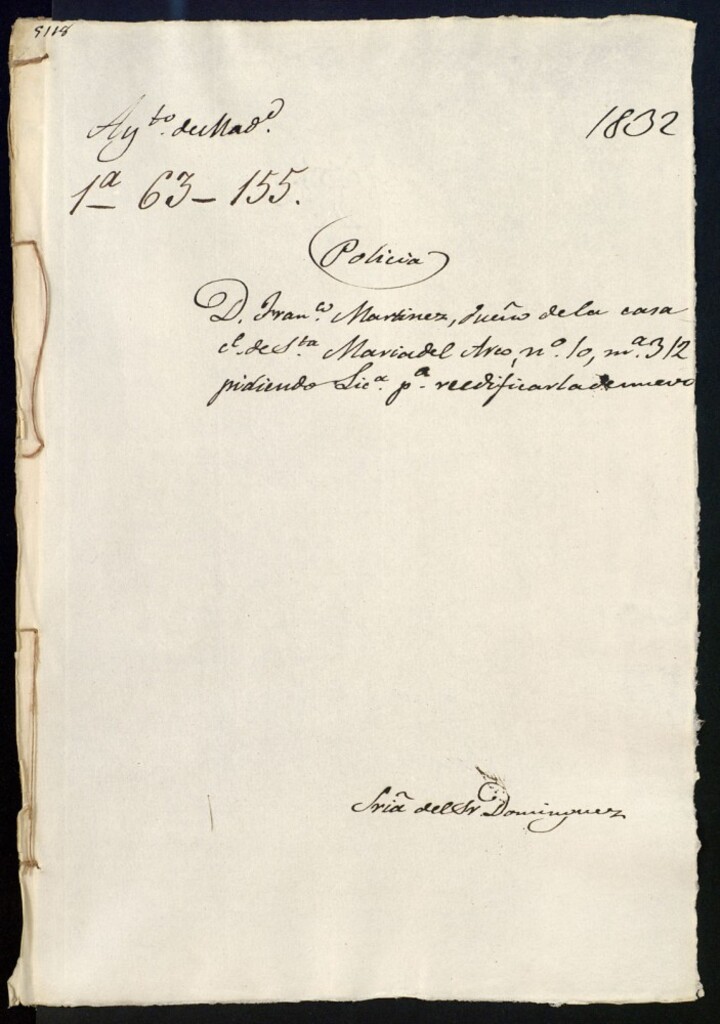 5118
Ayto. de Madd.
1832
1a 63-155.
Policia
D. Franco. Martinez, dueño de la casa
ce. de Sta Maria del Arco, no. 10, ma. 312
pidiendo Lica. pa. reedificarla de nuevo
Sria del Sr Dominguez